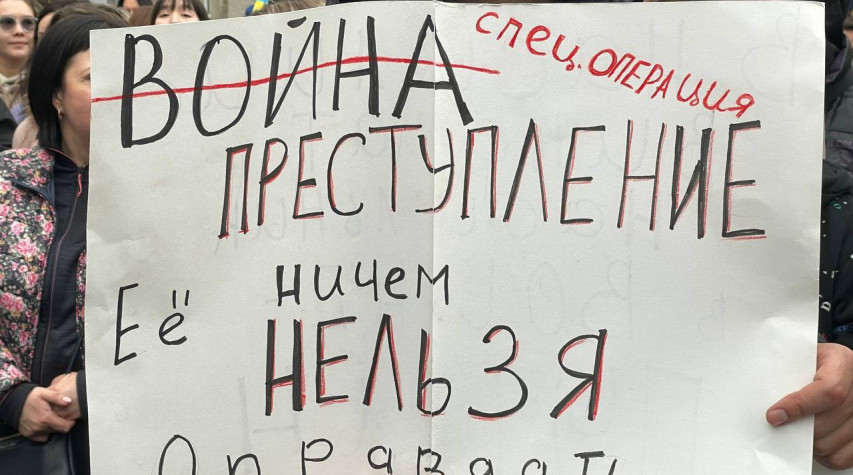 ВОЙНА спец. ОПЕРАЦИЯ
ПРЕСТУПЛЕНИЕ
Её ничем
НЕЛЬЗЯ
Оправдать